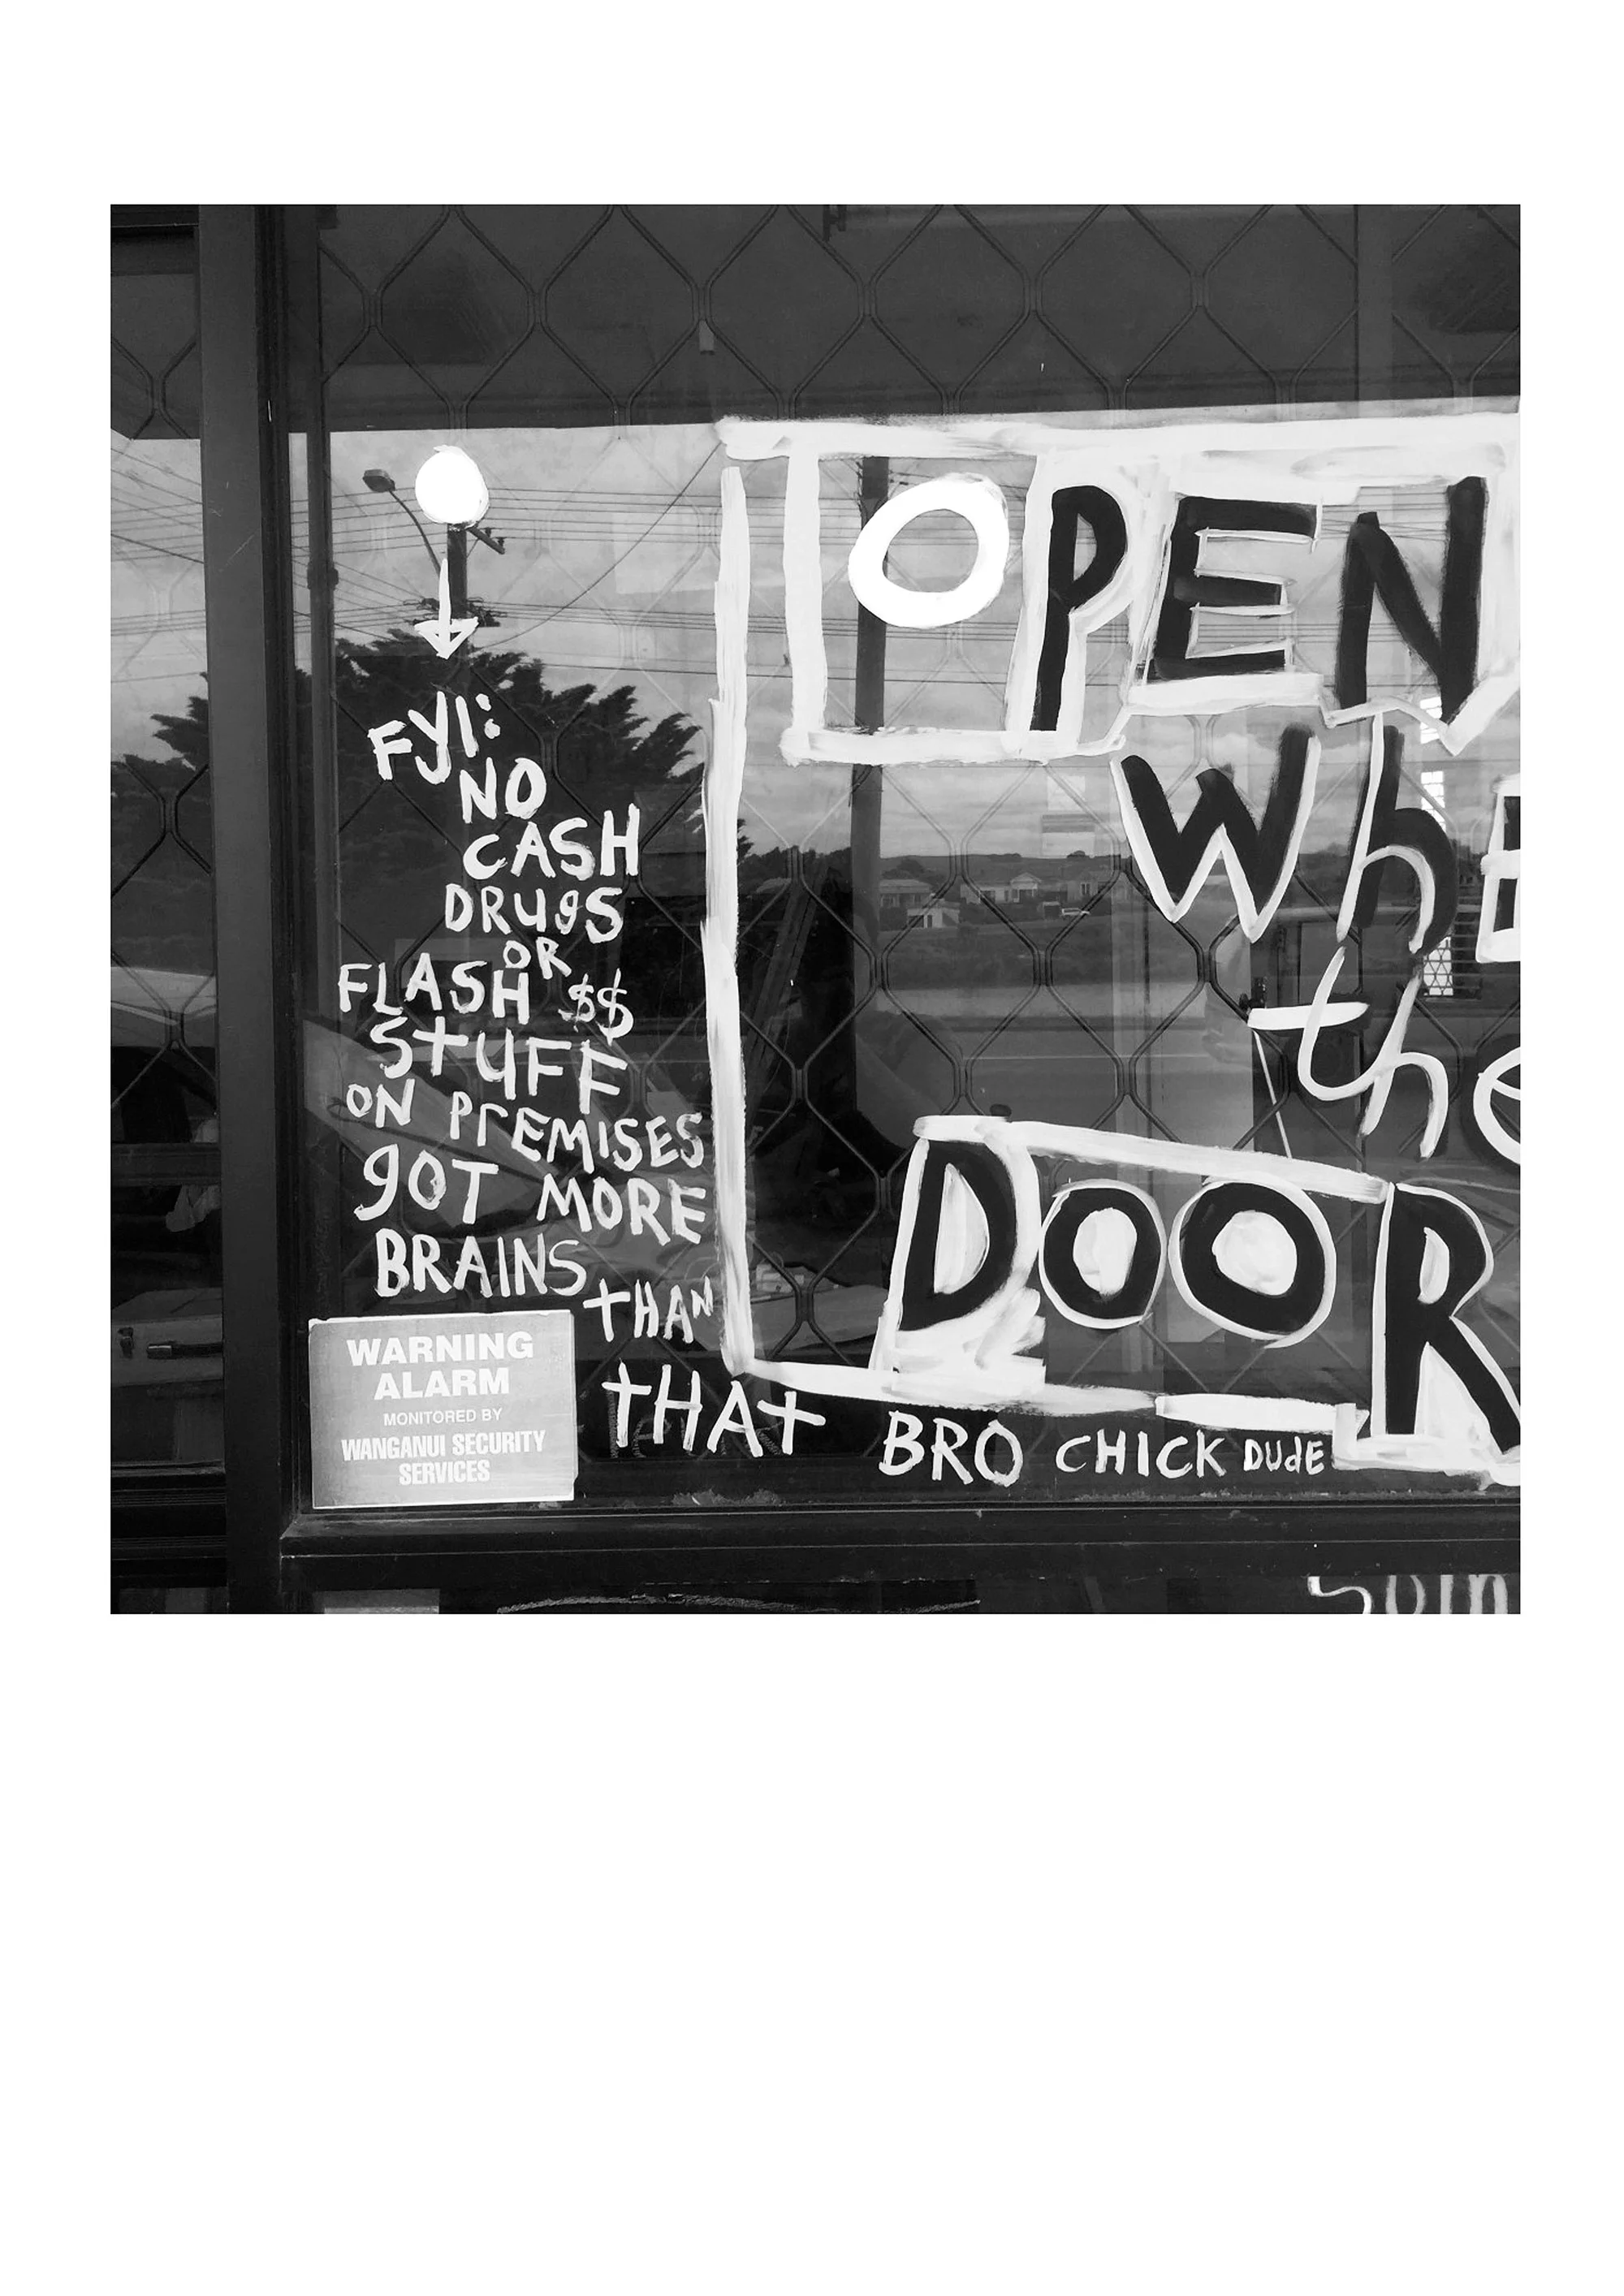 FYI:
NO
CASH
DRUgS
OR
FLASH $$
STUFF
ON PrEMISES
gOT MORE
BRAINS
tHAN
tHAt BRO CHICK DUdE
WARNING
ALARM
MONITORED BY
WANGANUI SECURITY
SERVICES
OPEN
whE
the
DOOR